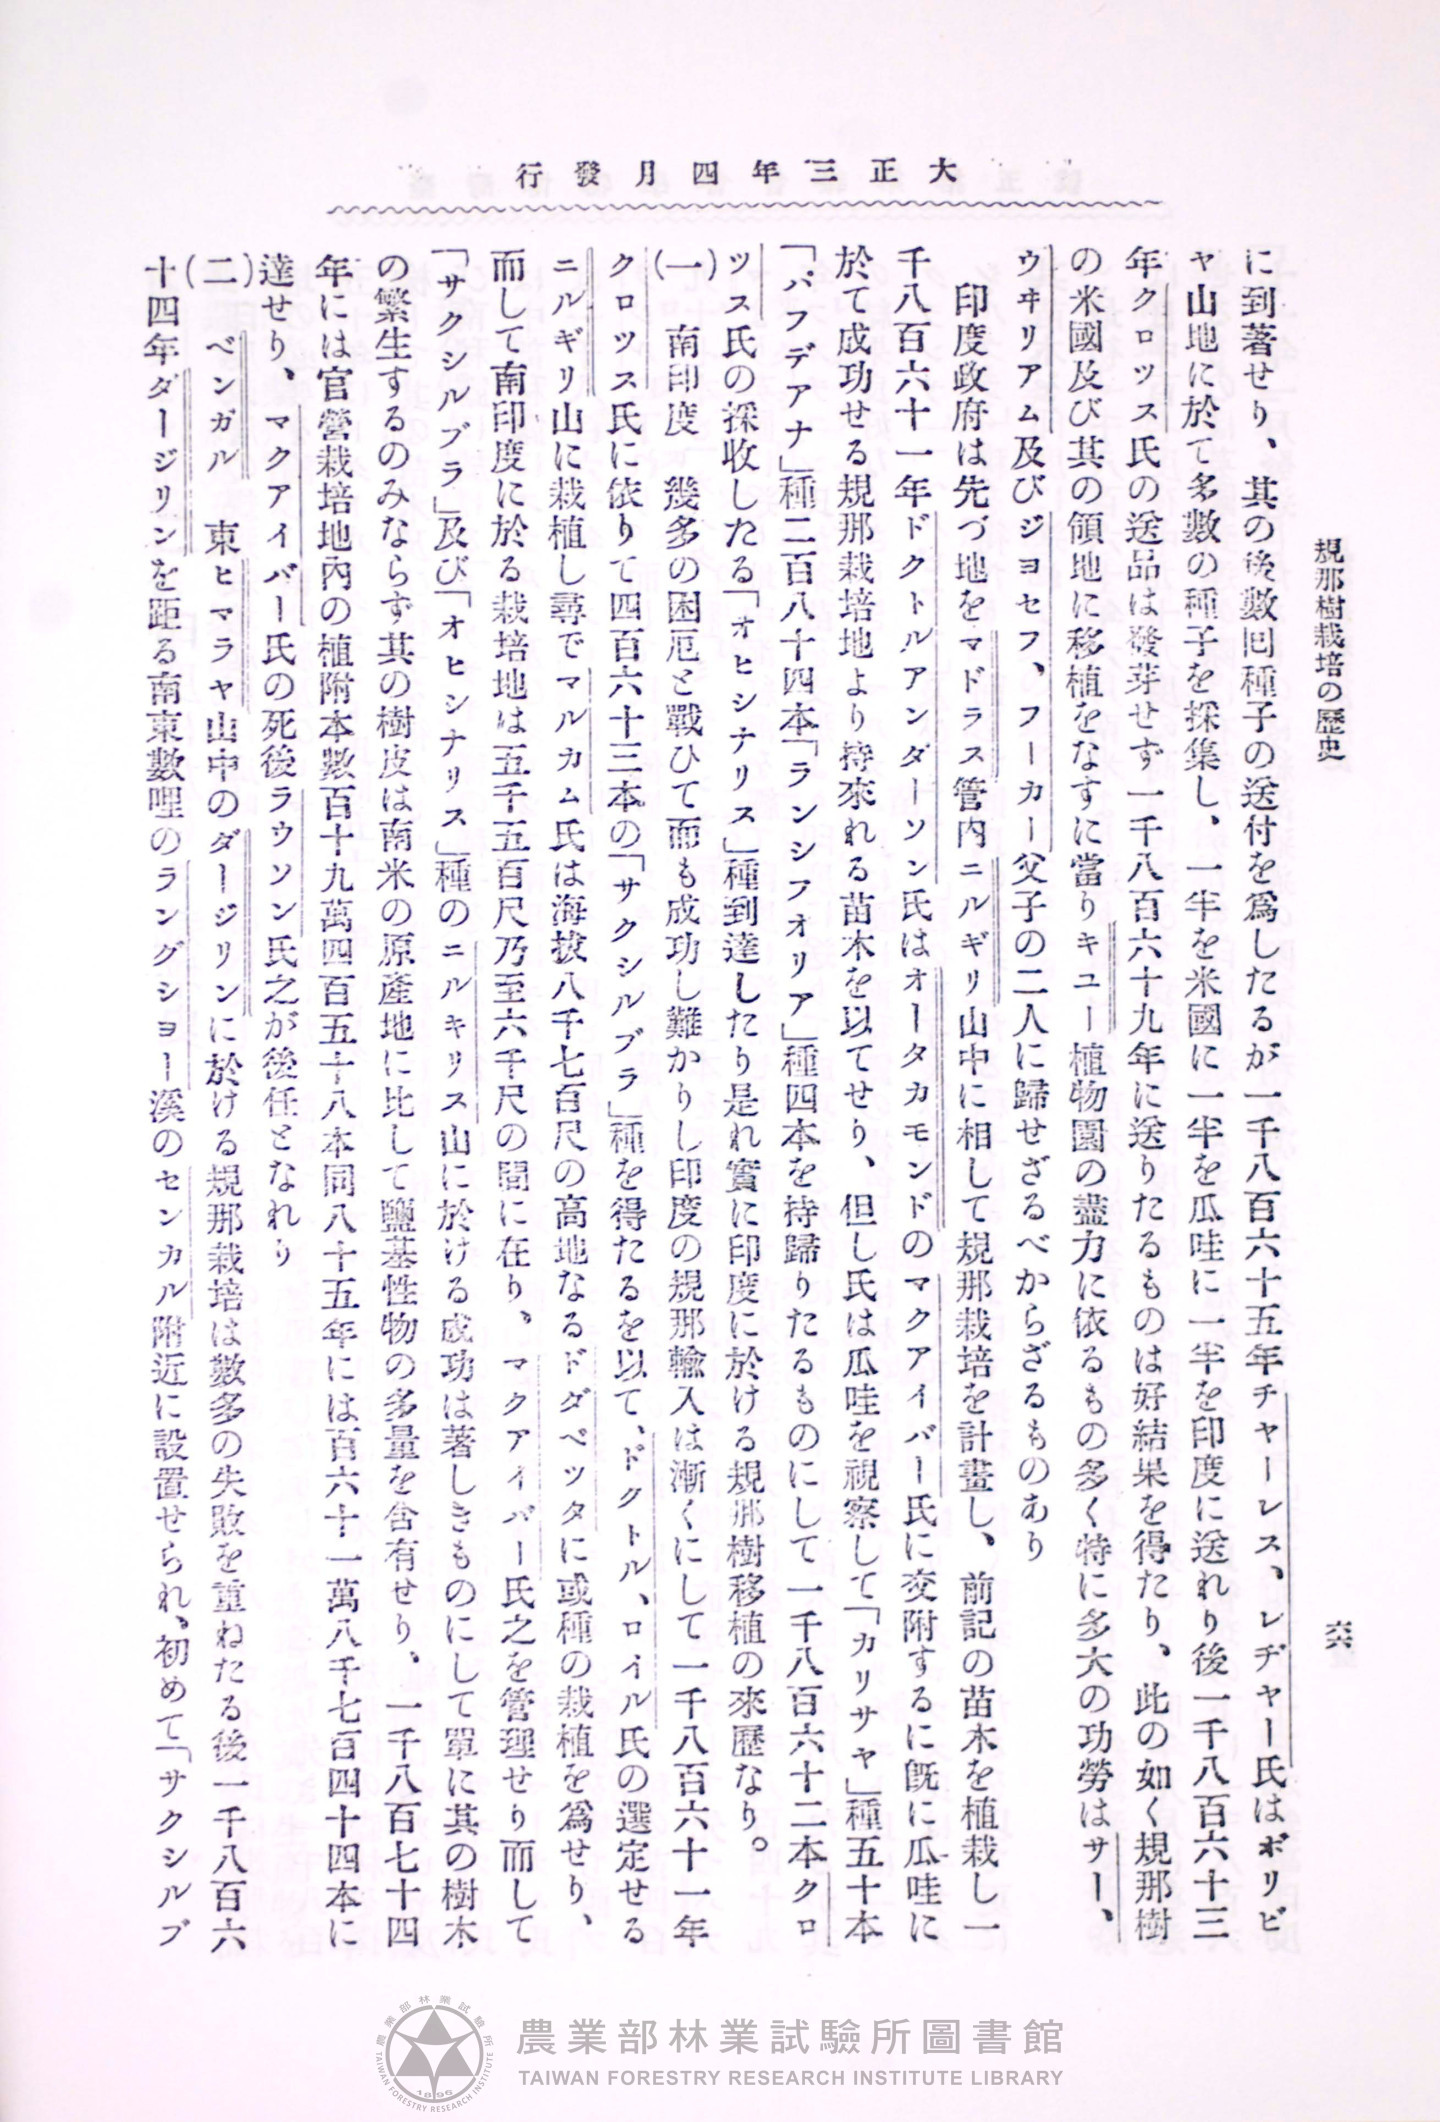 大正三年四月發行
規那樹栽培の歷史
六六
に到著せり、其の後數囘種子の送付を爲したるが一千八百六十五年チャーレス、レヂャー氏はボリビ
ヤ山地に於て多數の種子を採集し、一半を米國に一半を瓜哇に一半を印度に送れり後一千八百六十三
年クロツス氏の送品は發芽せず一千八百六十九年に送りたるものは好結果を得たり、此の如く規那樹
の米國及び其の領地に移植をなすに當りキユー植物園の盡力に依るもの多く特に多大の功勞はサー、
ウヰリアム及びジヨセフ、フーカー父子の二人に歸せざるべからざるものあり
印度政府は先づ地をマドラス管内ニルギリ山中に相して規那栽培を計畫し、前記の苗木を植栽し一
千八百六十一年ドクトルアンダーソン氏はオータカモンドのマクアイバー氏に交附するに旣に瓜哇に
於て成功せる規那栽培地より持來れる苗木を以てせり、但し氏は瓜哇を視察して「カリサヤ」種五十本
「パフデアナ」種二百八十四本「ランシフオリア」種四本を持歸りたるものにして一千八百六十二本クロ
ツス氏の採收したる「オヒシナリス」種到達したり是れ實に印度に於ける規那樹移植の來歷なり。
(一) 南印度 幾多の困厄と戰ひて而も成功し難かりし印度の規那輸入は漸くにして一千八百六十一年
クロツス氏に依りて四百六十三本の「サクシルブラ」種を得たるを以て、ドクトル、ロイル氏の選定せる
ニルギリ山に栽植し尋でマルカム氏は海拔八千七百尺の高地なるドダベツタに或種の栽植を爲せり、
而して南印度に於る栽培地は五千五百尺乃至六千尺の間に在り、マクアイバー氏之を管理せり而して
「サクシルブラ」及び「オヒシナリス」種のニルキリス山に於ける成功は著しきものにして單に其の樹木
の繁生するのみならず其の樹皮は南米の原產地に比して鹽基性物の多量を含有せり、一千八百七十四
年には官營栽培地內の植附本數百十九萬四百五十八本同八十五年には百六十一萬八千七百四十四本に
達せり、マクアイバー氏の死後ラウソン氏之が後任となれり
(二) ベンガル 東ヒマラヤ山中のダージリンに於ける規那栽培は數多の失敗を重ねたる後一千八百六
十四年ダージリンを距る南東數哩のラングシヨー溪のセンカル附近に設置せられ、初めて「サクシルブ
農業部林業試驗所圖書館
TAIWAN FORESTRY RESEARCH INSTITUTE LIBRARY
農業部林業試驗所
TAIWAN FORESTRY RESEARCH INSTITUTE
1896